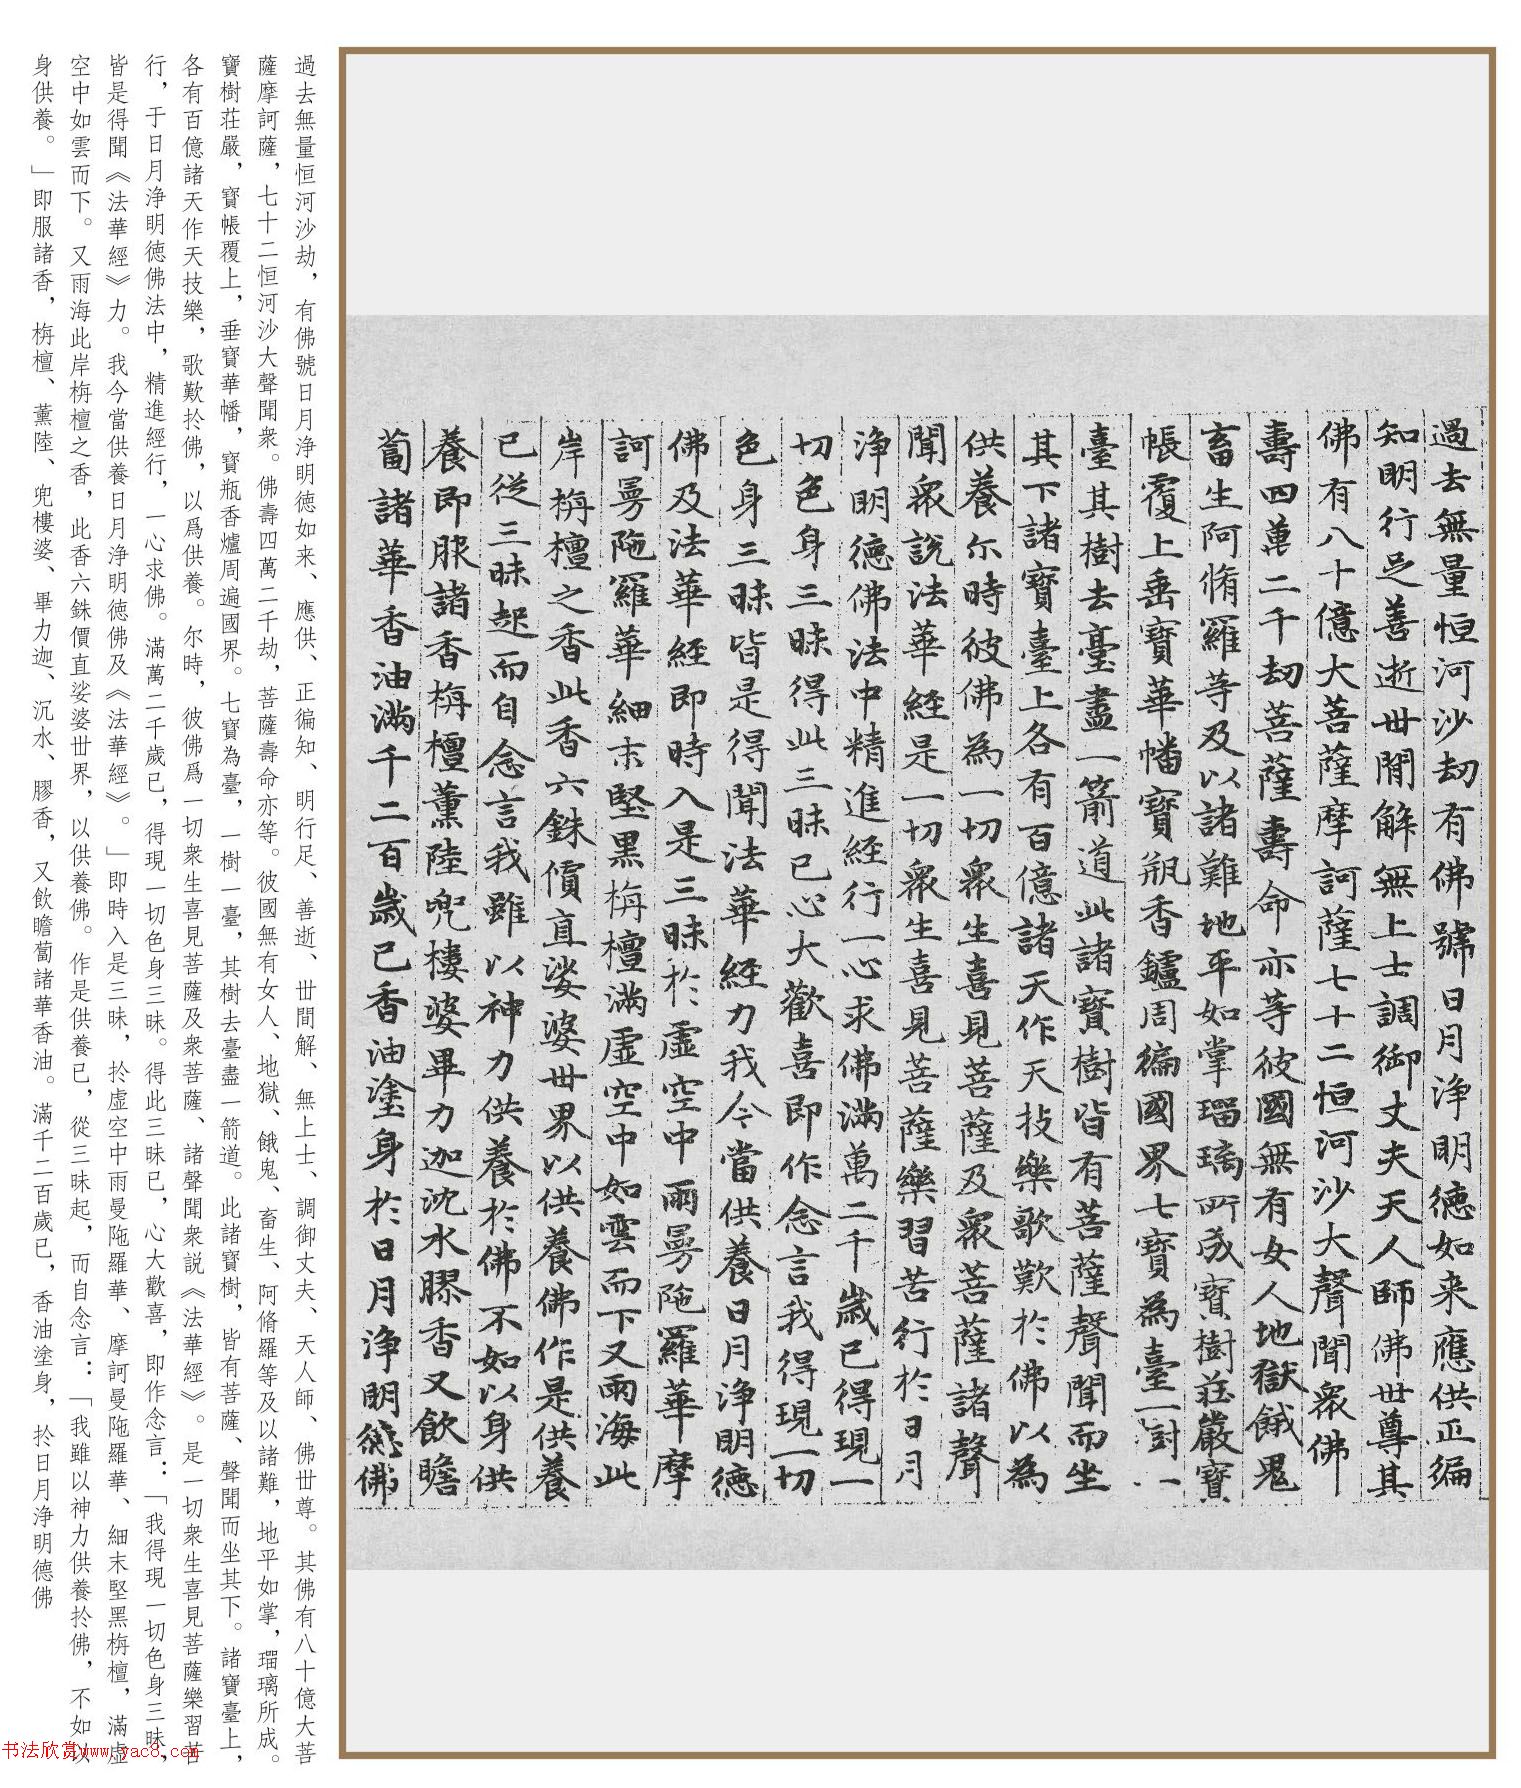 過去無量恒河沙劫有佛號日月浄明德如来應供正徧
知明行足善逝世間解無上士調御丈夫天人師佛世尊其
佛有八十億大菩薩摩訶薩七十二恒河沙大聲聞衆佛
壽四萬二千劫菩薩壽命亦等彼國無有女人地獄餓鬼
畜生阿脩羅等及以諸難地平如掌瑠璃所成寶樹莊嚴寶
帳覆上垂寶華幡寶瓶香鑪周徧國界七寶為臺一樹一
臺其樹去臺盡一箭道此諸寶樹皆有菩薩聲聞而坐
其下諸寶臺上各有百億諸天作天技樂歌歎於佛以為
供養尔時彼佛為一切衆生喜見菩薩及衆菩薩諸聲
聞衆説法華經是一切衆生喜見菩薩樂習苦行於日月
浄明德佛法中精進經行一心求佛滿萬二千歲已得現一
切色身三昧得此三昧已心大歡喜即作念言我得現一切
色身三昧皆是得聞法華經力我今當供養日月浄明德
佛及法華經即時入是三昧於虛空中雨曼陁羅華摩
訶曼陁羅華細末堅黑栴檀滿虛空中如雲而下又雨海此
岸栴檀之香此香六銖價直娑婆世界以供養佛作是供養
已從三昧起而自念言我雖以神力供養於佛不如以身供
養即服諸香栴檀薰陸兜樓婆畢力迦沈水膠香又飲瞻
蔔諸華香油滿千二百歲已香油塗身於日月浄明德佛
過去無量恒河沙劫，有佛號日月浄明德如来、應供、正徧知、明行足、善逝、世間解、無上士、調御丈夫、天人師、佛世尊。其佛有八十億大菩
薩摩訶薩，七十二恒河沙大聲聞衆。佛壽四萬二千劫，菩薩壽命亦等。彼國無有女人、地獄、餓鬼、畜生、阿脩羅等及以諸難，地平如掌，瑠璃所成。
寶樹莊嚴，寶帳覆上，垂寶華幡，寶瓶香爐周遍國界。七寶為臺，一樹一臺，其樹去臺盡一箭道。此諸寶樹，皆有菩薩、聲聞而坐其下。諸寶臺上，
各有百億諸天作天技樂，歌歎於佛，以爲供養。尔時，彼佛爲一切衆生喜見菩薩及衆菩薩、諸聲聞衆説《法華經》。是一切衆生喜見菩薩樂習苦
行，于日月浄明德佛法中，精進經行，一心求佛。滿萬二千歲已，得現一切色身三昧。得此三昧已，心大歡喜，即作念言：「我得現一切色身三昧，
皆是得聞《法華經》力。我今當供養日月浄明德佛及《法華經》。」即時入是三昧，於虛空中雨曼陁羅華、摩訶曼陁羅華、細末堅黑栴檀，滿虛
空中如雲而下。又雨海此岸栴檀之香，此香六銖價直娑婆世界，以供養佛。作是供養已，從三昧起，而自念言：「我雖以神力供養於佛，不如以
身供養。」即服諸香，栴檀、薰陸、兜樓婆、畢力迦、沉水、膠香，又飲瞻蔔諸華香油。滿千二百歲已，香油塗身，於日月浄明德佛
书法欣赏www.yac8.com